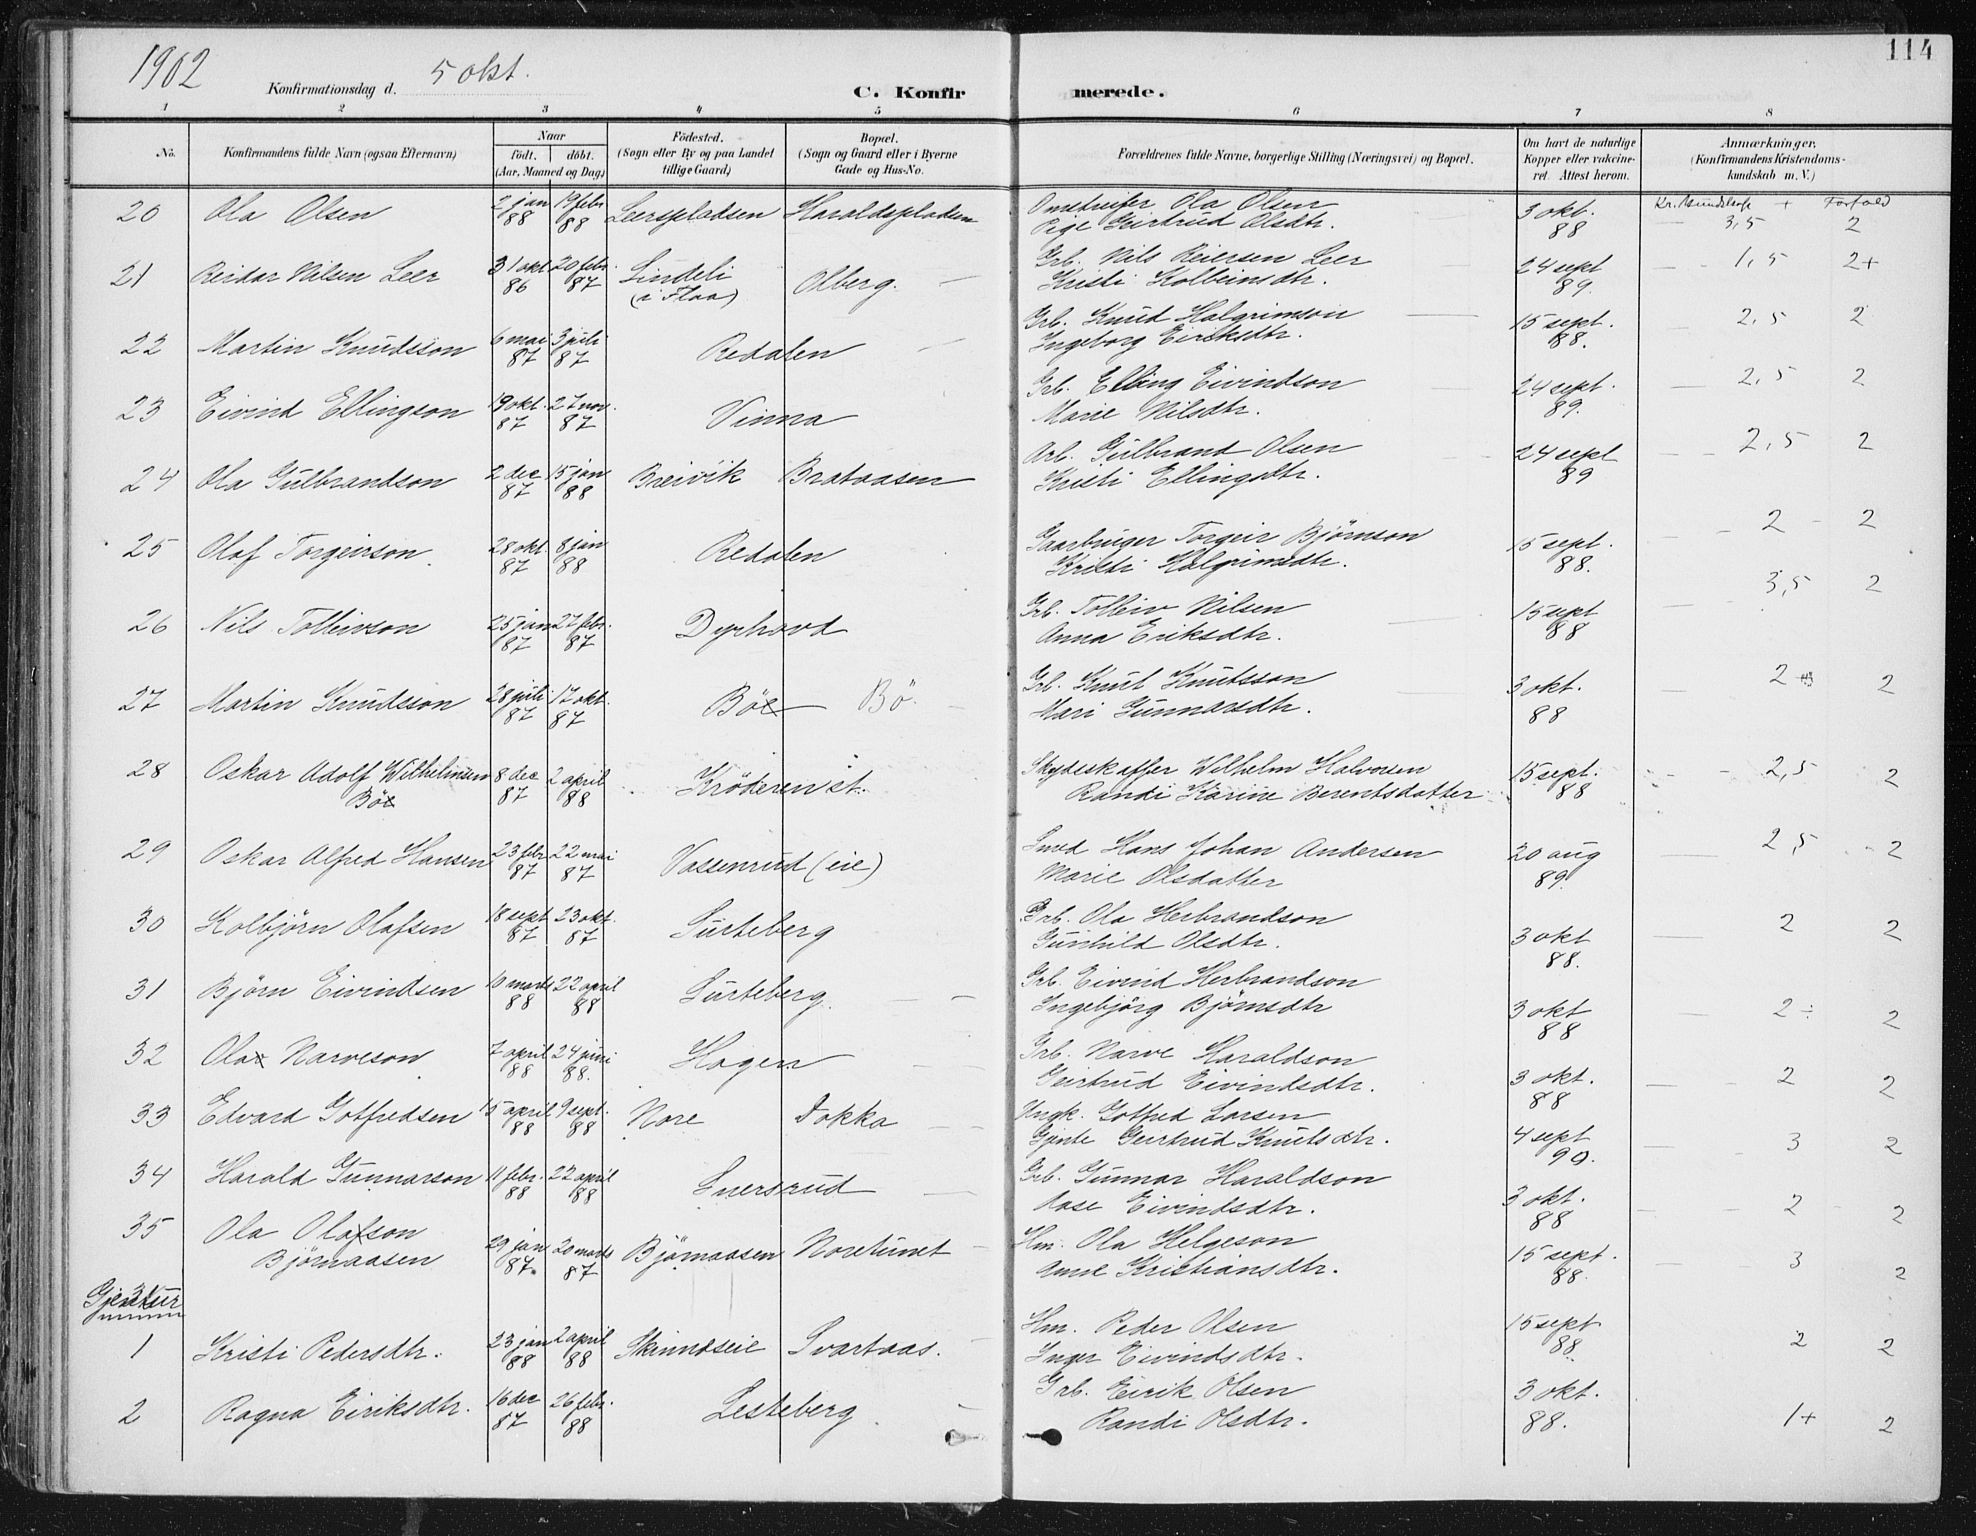 1902
Konfirmationsdag d. 5 okt.
C. Konfirmerede.
114
1 2 3 4 5 6 7 8
No. Konfirmandens fulde Navn (ogsaa Efternavn) Naar födt. döbt. (Aar, Maaned og Dag) Födested. (Sogn eller By og paa Landet tillige Gaard) Bopæl. (Sogn og Gaard eller i Byerne Gade og Hus-No. Forældrenes fulde Navne, borgerlige Stilling (Næringsvei) og Bopæl. Om havt de naturlige Kopper eller vakcineret. Attest herom. Anmærkninger, (Konfirmandens Kristendomskundskab m. V.)
Kr. kundskap + Forhold
20 Ola Olsen 2 jan 88 19 febr 88 Leerspladsen Haraldspladsen Ola Olsen Pige Geirtrud Olsdtr. 3 okt. 88 3,5 2
21 Reidar Nilsen Leer 31 okt 86 20 febr. 87 Lindeli (i Flaa) Olberg. Grb. Nils Reiersen Leer Kristi Kolbeinsdtr. 24 sept 89. 1,5 2+
22 Martin Knudsson 6 mai 87 3 juli 87 Redalen Grb. Knud Halgrimson Ingeborg Eiriksdtr. 15 sept. 88. 2,5 2
23 Eivind Ellingson 19 okt. 87 27 nov. 87 Vinna Grb. Elling Eivindson Marie Nilsdtr. 24 sept. 89. 2,5 2
24 Ola Gulbrandson 2 dec 87 15 jan 88 Breivik Brataasen Arb. Gulbrand Olsen Kristi Ellingsdtr. 24 sept 89 2,5 2
25 Olaf Torgeirson 28 okt. 87 8 jan 88 Redalen Gaardbruger Torgeir Björnson Kristi Halgrimsdtr. 15 sept. 88. 2 2
26 Nils Tolleivson 25 jan 87 27 febr. 87 Dyrhovd Grb. Tolleiv Nilsen Anna Eriksdtr. 15 sept 88 3,5 2
27 Martin Knudsson 28 juli 87 17 okt. 87 Böe Bö. Grb. Knut Knutsson Mari Gunnarsdtr. 3 okt. 88 2 2
28 Oskar Adolf Wilhelmsen Böe 8 dec 87 2 april 88 Kröderen st. Skydsskaffer Wilhelm Halvorsen Randi Karine Berentsdatter 15 sept. 88 2,5 2
29 Oskar Alfred Hansen 23 febr 87 22 mai 87 Vassenrud (eie) Smed Hans Johan Andersen Marie Olsdatter 20 aug 89. 2,5 2
30 Kolbjörn Olafsen 18 sept 87 23 okt. 87 Surteberg Grb. Ola Herbrandson Gunhild Olsdtr. 3 okt 88. 2 2
31 Björn Eivindsen 10 marts 88 22 april 88 Surteberg Grb. Eivind Herbrandson Ingebjörg Björnsdtr 3 okt 88 2 ÷ 2
32 Ola Narveson 7 april 88 24 juni 88. Hagen Grb. Narve Haraldson Geirtrud Eivindsdtr. 3 okt. 88 2 2
33 Edvard Gotfredsen 15 april 88 9 sept. 88 Nore Dokka Ungk. Gotfred Larsen Gjente Geirtrud Knutsdtr. 4 sept 90. 3 2
34 Harald Gunnarson 11 febr. 88 22 april 88 Snersrud Grb. Gunnar Haraldson Aase Eivindsdtr. 3 okt. 88 2 2
35 Ola Olafson Björnaasen 29 jan 87. 20 marts 87 Björnaasen Noretunet Hm. Ola Helgeson Anne Kristiansdtr. 15 sept. 88. 3 2
Gjenter
1 Kristi Pedersdtr. 23 jan 88 2 april 88 Skinndseie Svartaas. Hm. Peder Olsen Inger Eivindsdtr. 15 sept 88. 2 2
2 Ragna Eiriksdtr. 16 dec 87 26 febr. 88 Lesteberg Grb. Eirik Olsen Randi Olsdtr. 3 okt. 88. 1+ 2